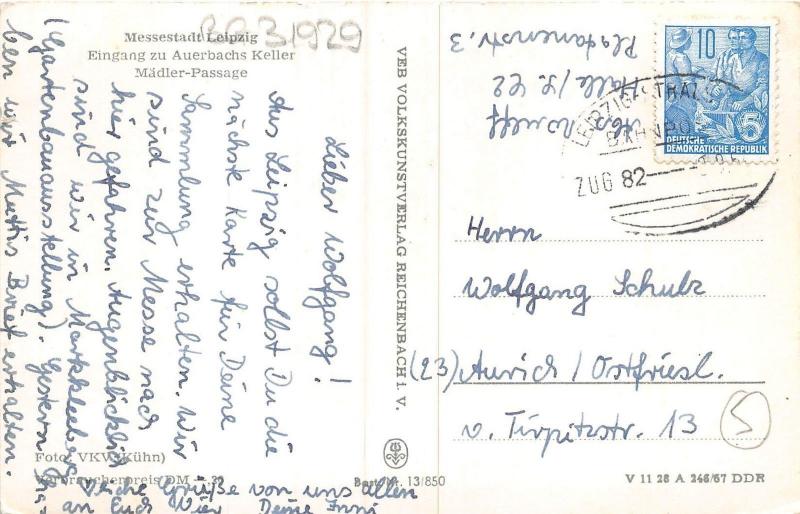 BA31929
Messestadt Leipzig
Eingang zu Auerbachs Keller
Mädler-Passage
Lieber Wolfgang!
Aus Leipzig sollst Du die
nächste Karte für Deine
Sammlung erhalten. Wir
sind zur Messe nach
hier gefahren. Augenblicklich
sind wir in Markkleeberg
(Gartenbauausstellung). Gestern ha-
ben wir Muttis Brief erhalten.
Herzliche Grüße von uns allen
an Euch Vier Deine
Foto: VKV (Kühn)
Verbraucherpreis DM
Best.-Nr. 13/850
VEB VOLKSKUNSTVERLAG REICHENBACH i. V.
Halle/S. 22
Platanenstr. 3
10
5
DEUTSCHE
DEMOKRATISCHE REPUBLIK
BAHNPOST
ZUG 82
Herrn
Wolfgang Schulz
(23) Aurich / Ostfriesl.
v. Tirpitzstr. 13
5
V 11 28 A 246/67 DDR